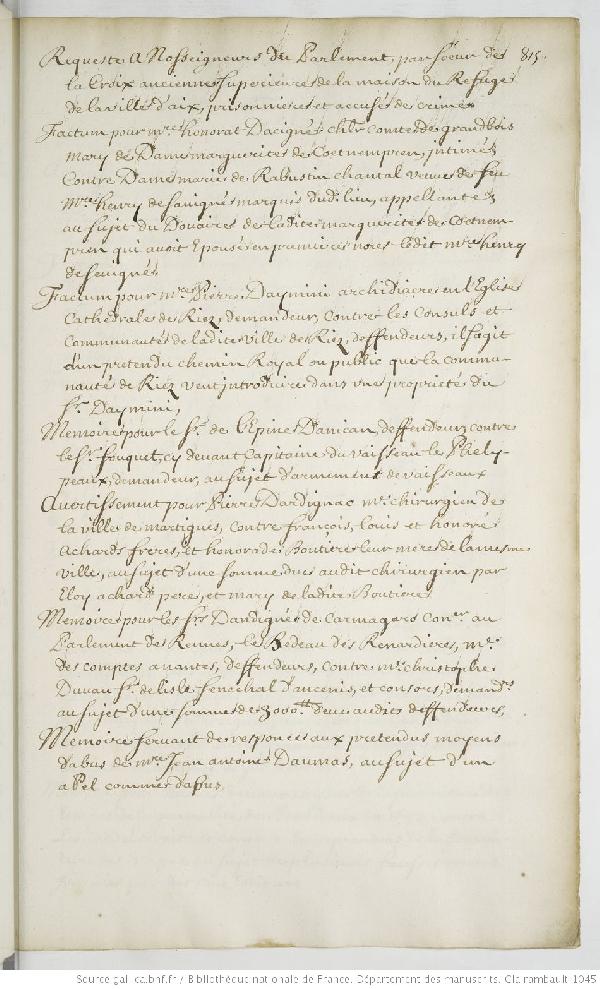 Requeste A Nosseigneurs du Parlement, par sœur de 815.
la Croix ancienne superieure de la maison du Refuge
de la ville d'aix, prisonniere et accusée de crime
Factum pour mre honorat Dacigné chlr comte de grandbois
mary de Dame marguerite de Coetnempren, intimée
Contre Dame marie de Rabustin chantal veuve de feu
mre henry de sauigné marquis dudt lieu, appellante
au sujet du Douaire de ladite marguerite de Coetnem-
pren qui avoit Epousé en premieres noces ledit mre henry
de seuigné
Factum pour mre Pierre Daymini archidiacre en l'Eglise
Cathedrale de Riez, demandeur, contre les Consuls et
Communauté de ladite ville de Riez, deffendeurs, il s'agit
d'un pretendu chemin Royal ou public que la commu-
nauté de Riez veut introduire dans une proprieté du
sr. Daymini,
Memoire pour le sr. de l'Epine Danican, deffendeur, contre
le sr. fouquet, cy devant Capitaine du vaisseau le Phely-
peaux, demandeur, au sujet d'armement de vaisseaux
Avertissement pour Pierre Dardignac me chirurgien de
la ville de martigues, contre françois, louis et honoré
Achards freres, et honorade Boutiere leur mere de la mesme
ville, au sujet d'une somme due audit chirurgien par
Eloy achard pere, et mary de ladite Boutiere
Memoire pour les srs Dandigné de Carmagers Coner au
Parlement de Rennes, le Bedeau des Renardieres, me
des comptes a nantes, deffendeurs, contre mre christophe
Duvau sr. de lisle senechal d'ancenis, et consors, demandrs
au sujet d'une somme de 3000tt deue audits deffendeurs,
Memoire servant de responce aux pretendus moyens
d'abus de mre Jean antoine Daumas, au sujet d'un
apel comme d'abus.
Source gallica.bnf.fr / Bibliothèque nationale de France. Département des manuscrits. Clairambault 1045